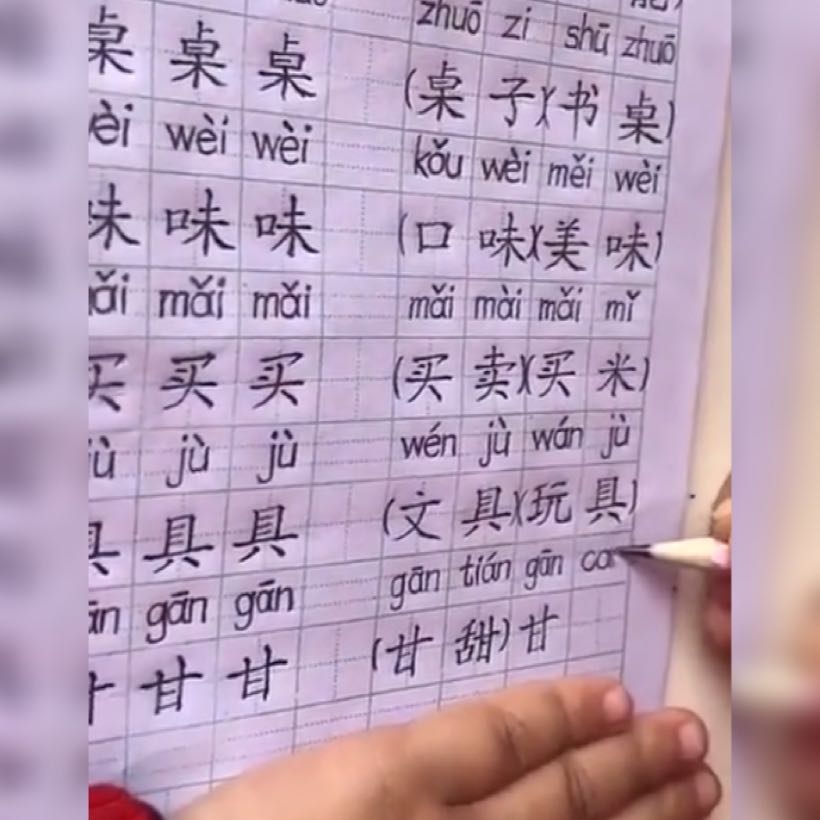 zhuō zi shū zhuō
桌 桌 桌 (桌 子)(书 桌)
wèi wèi kǒu wèi měi wèi
味 味 味 (口 味)(美 味)
mǎi mǎi mǎi mài mǎi mǐ
买 买 买 (买 卖)(买 米)
jù jù wén jù wán jù
具 具 具 (文 具)(玩 具)
gān gān gān tián gān ca
甘 甘 (甘 甜) 甘